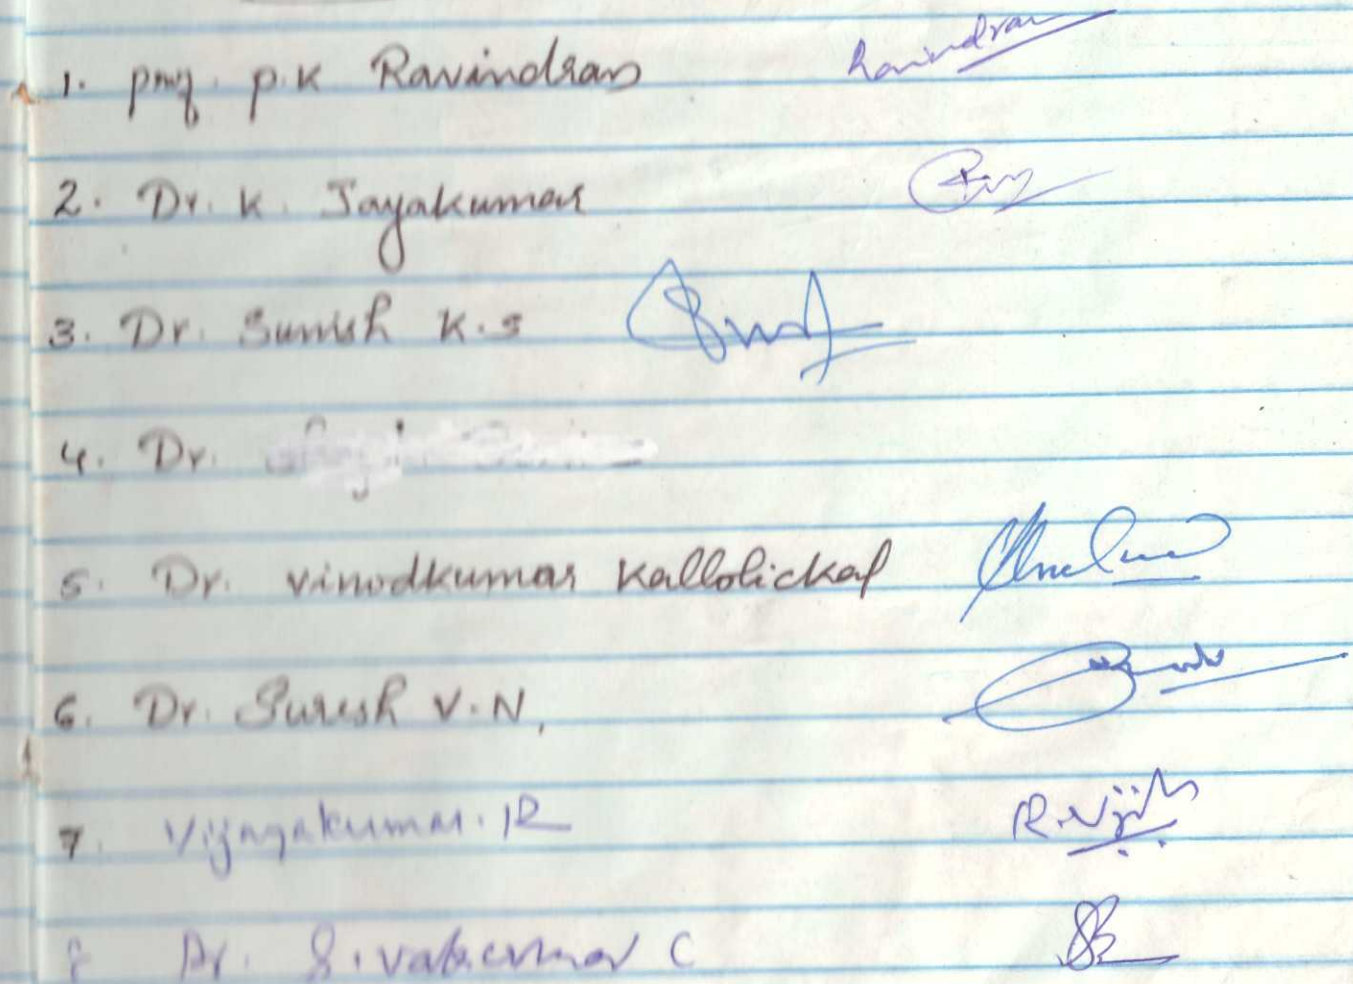 1. Prof. P.K Ravindran Ravindran
2. Dr. K. Jayakumar
3. Dr. Sunish K.S
4. Dr.
5. Dr. Vinodkumar Kallolickal
6. Dr. Suresh V.N,
7. Vijayakumar. R R.Viji
8 Dr. Sivakumar C